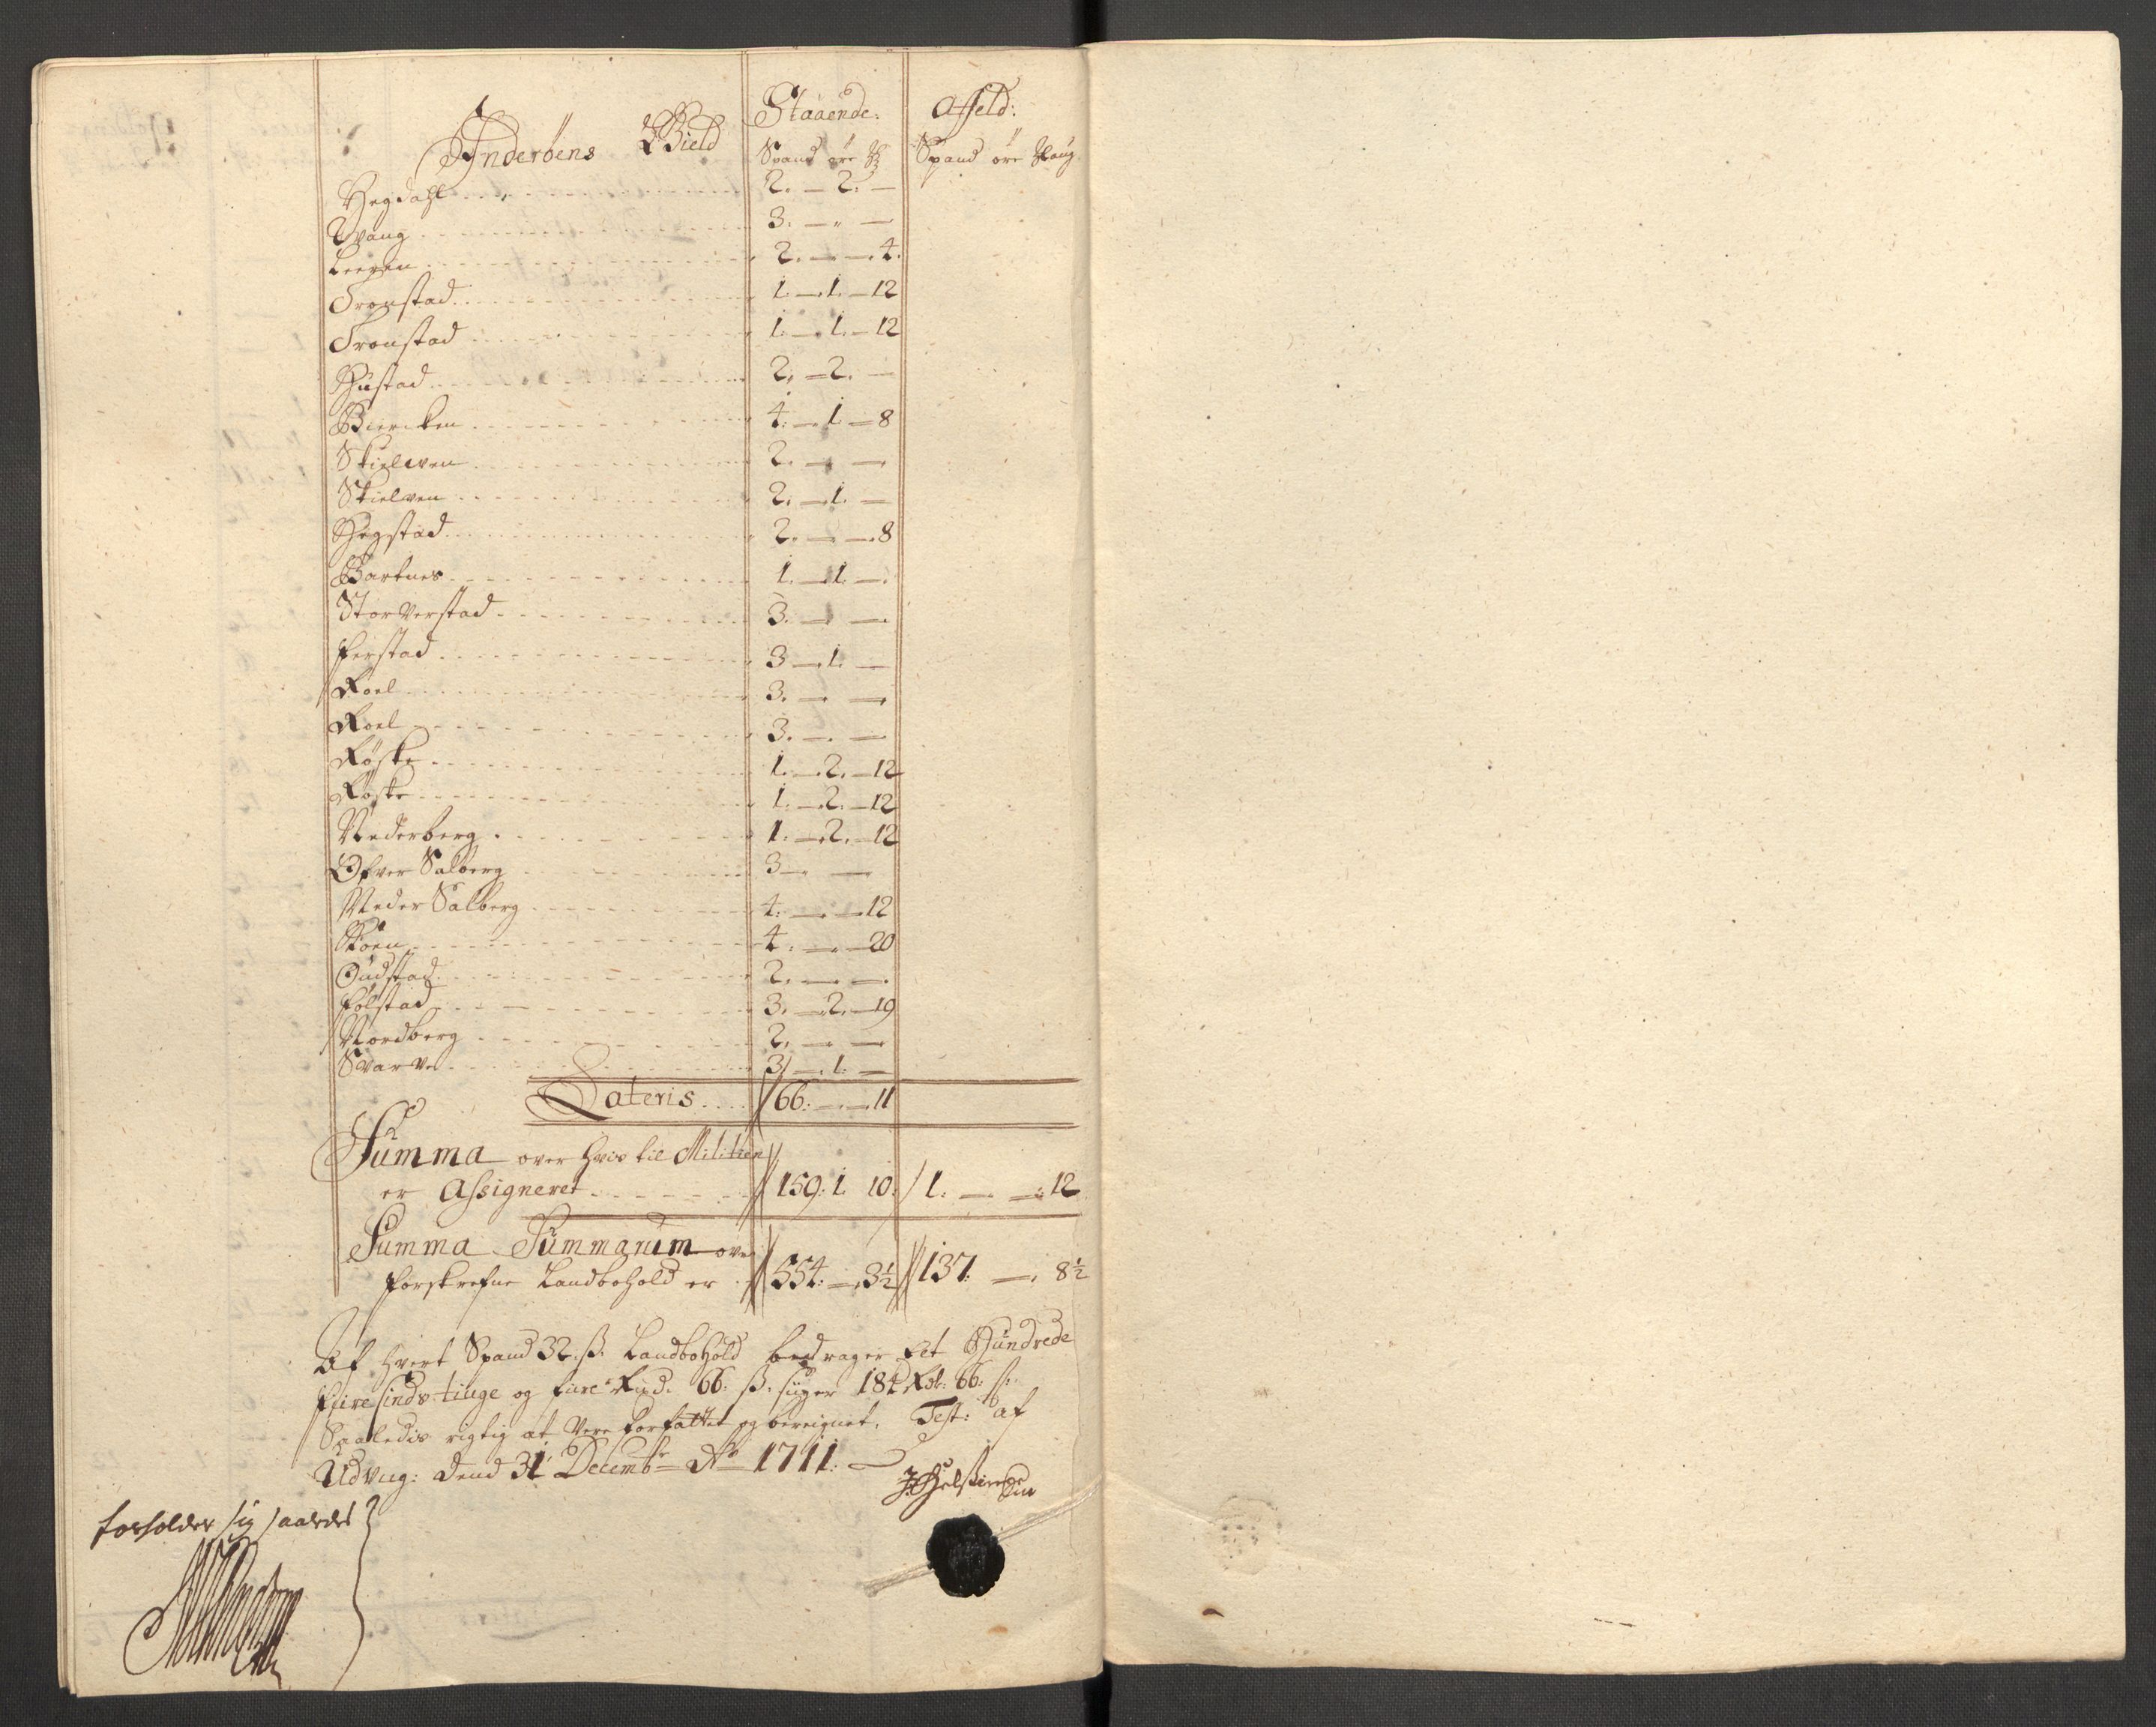 Staaende: Affeld:
Inderöens Gield Spand öre Spand öre Maug
Hegdahl 2. — 2. —
Wang 3. — " —
Leeren 2. — — 4.
Tronstad 1. — 1. — 12
Tronstad 1. — 1. — 12
Hustad 2. — 2. —
Biercken 4. — 1 — 8
Skielwen 2. — —
Skielwen 2. — 1. —
Hegstad 2. — — 8
Bartnes 1. — 1. —
Stor Verstad 3. — —
ferstad 3 — 1. —
Roel 3. — —
Roel 3. — —
Röske 1. — 2. — 12
Röske 1. — 2. — 12
Nederberg 1. — 2. — 12
Öfver Salberg 3 — —
Neder Salberg 4. — — 12
4. — — 20
Oudstad 2. — —
følstad 3. — 2. — 19
Nordberg 2. — —
Svarve 3 — 1. —
Lateris 66. — — 11
Summa over hvis til Militien
er Assigneret 159. 1. 10. 1. — — 12
Summa Summarum over
forskrefne Landbohold er 554. — 3½ 137. — 8½
Af hvert Spand 32 ß. Landbohold bedrager Et Hundrede
fiiresinds tiuge og fiire Rixd. 66. ß. siiger 184 Rdr. 66. ß.
Saaledis rigtig at Vere forfattet og bereignet. Test: af
Udvug: dend 31 Decembr Ao 1711.
forholder sig saaledes